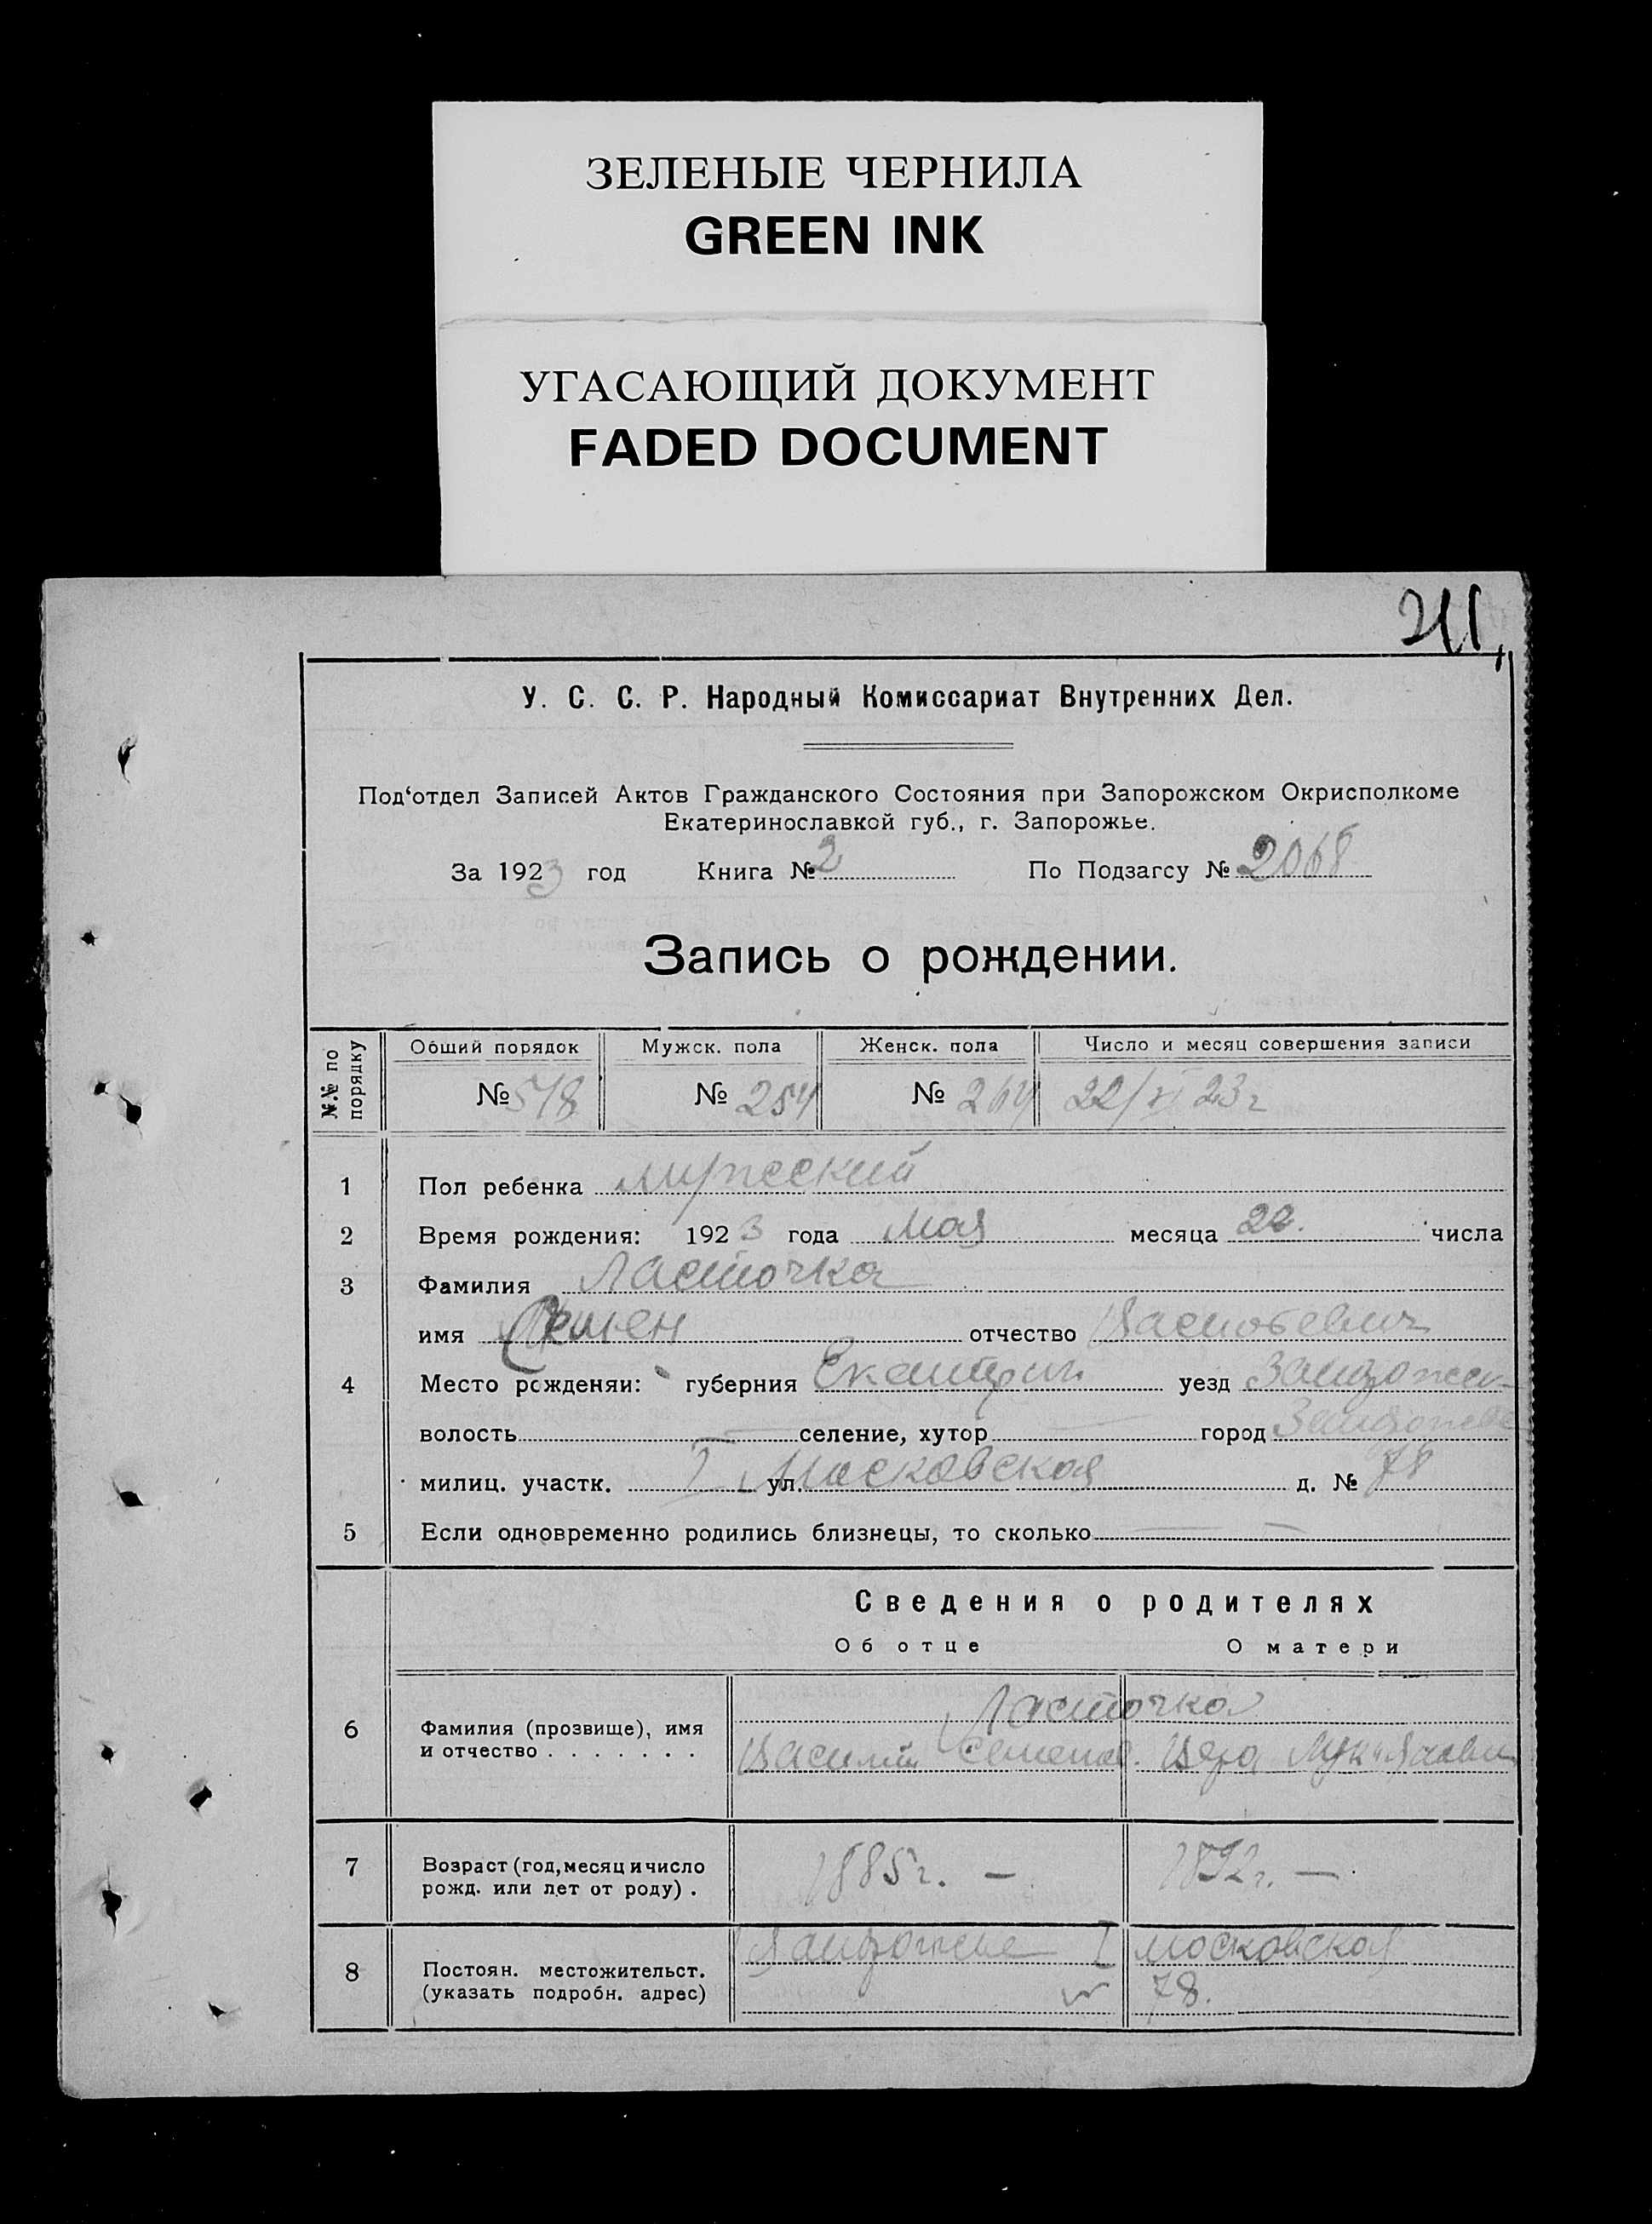 ЗЕЛЕНЫЕ ЧЕРНИЛА
GREEN INK
УГАСАЮЩИЙ ДОКУМЕНТ
FADED DOCUMENT
У. С. С. Р. Народный Комиссариат Внутренних Дел.
Под‘отдел Записей Актов Гражданского Состояния при Запорожском Окрисполкоме
Екатеринославкой губ., г. Запорожье.
За 1923 год Книга № 2 По Подзагсу № 2068
Запись о рождении.
№№ по порядку
Общий порядок Мужск. пола Женск. пола Число и месяц совершения записи
№ 518 № 254 № 264 22/VI 23г
1 Пол ребенка мужеский
2 Время рождения: 1923 года Мая месяца 22. числа
3 Фамилия Ласточка
имя отчество Васильевич
4 Место рожденяи: губерния Екатерин уезд Запорожск
волость селение, хутор город Запорожье
милиц. участк. I ул. Московская д. № 78
5 Если одновременно родились близнецы, то сколько
Сведения о родителях
Об отце О матери
Ласточка
6 Фамилия (прозвище), имя
и отчество . . . . . . . Василий Семенов. Вера
7 Возраст (год, месяц и число
рожд. или лет от роду) . 1885г. — 1892г. —
8 Постоян. местожительст. Запорожье I Московская
(указать подробн. адрес) 78.